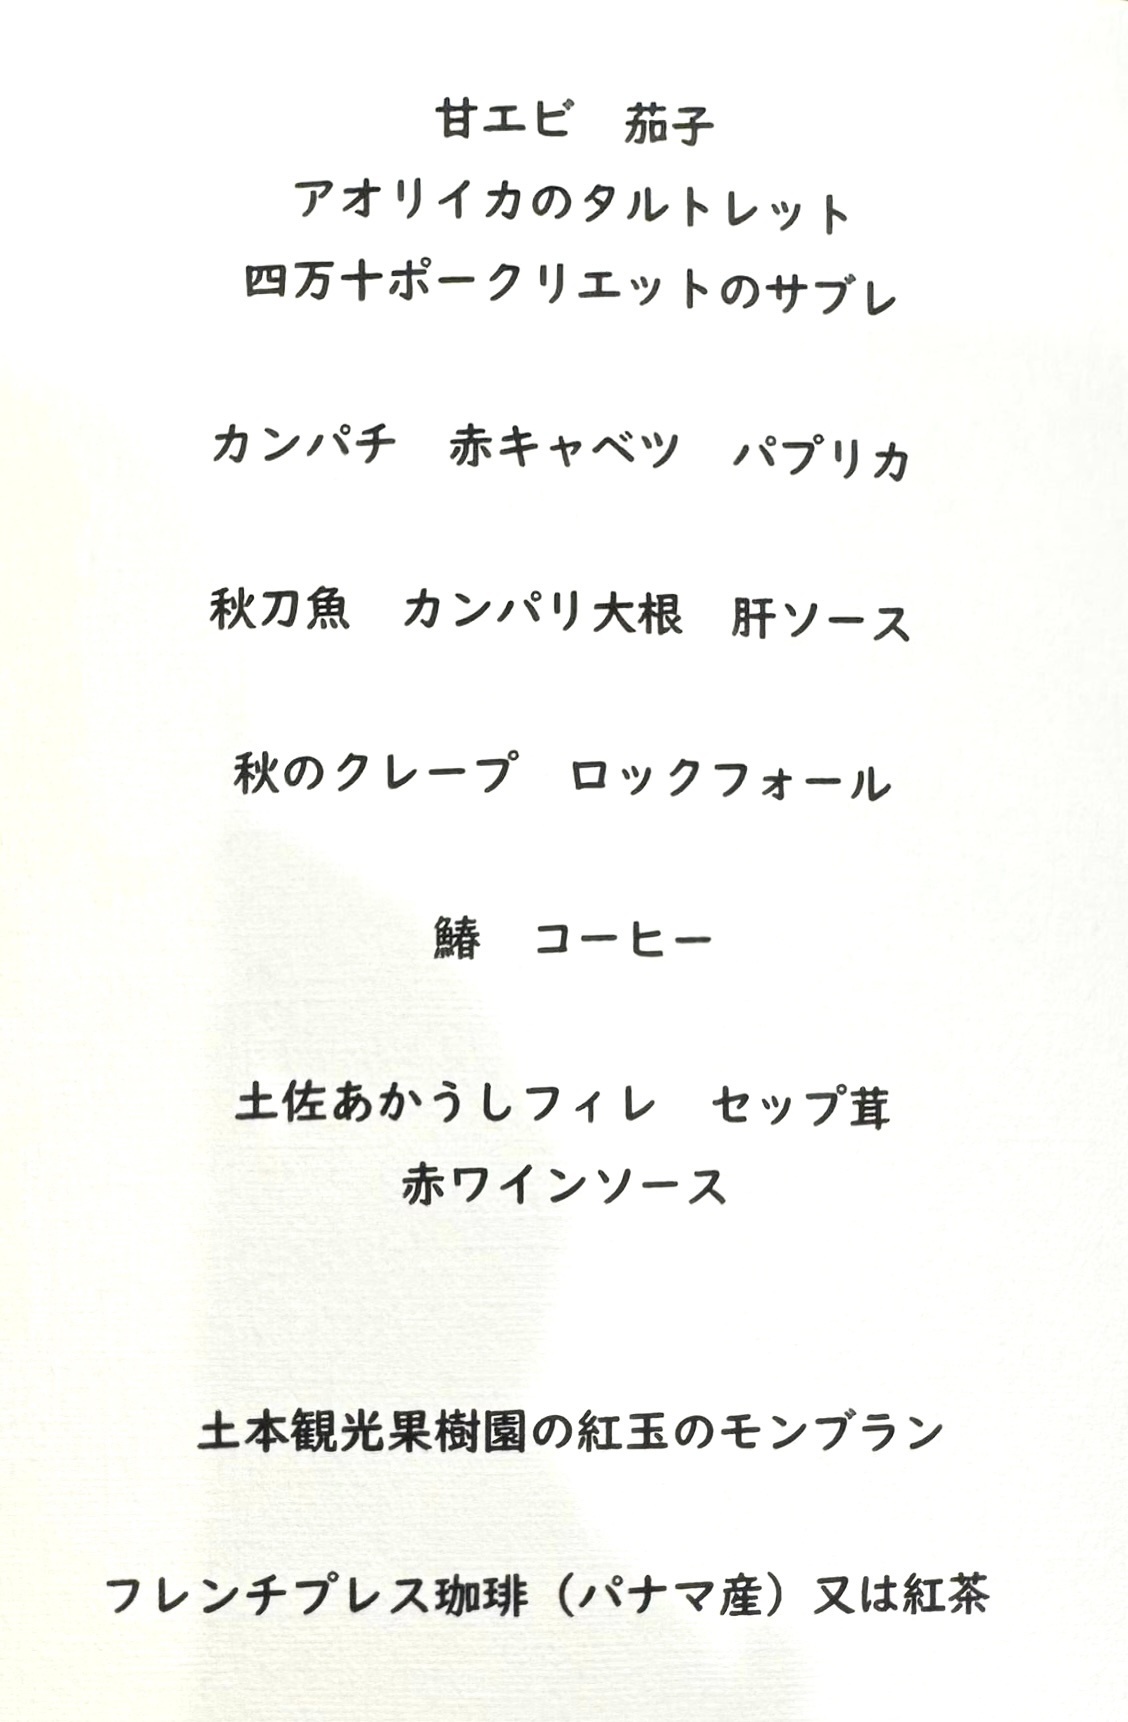 甘エビ　茄子
アオリイカのタルトレット
四万十ポークリエットのサブレ
カンパチ　赤キャベツ　パプリカ
秋刀魚　カンパリ大根　肝ソース
秋のクレープ　ロックフォール
鰆　コーヒー
土佐あかうしフィレ　セップ茸
赤ワインソース
土本観光果樹園の紅玉のモンブラン
フレンチプレス珈琲（パナマ産）又は紅茶